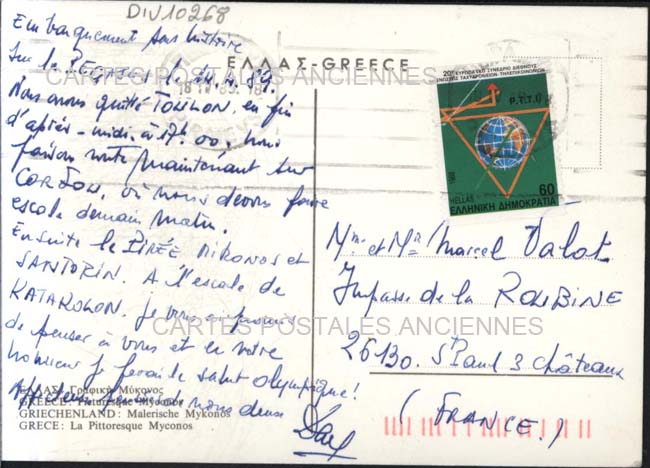 DIV10268
Embarquement sans histoire
Sur le PEGASUS le 89.
Nous avons quitté TOULON, en fin
d'après-midi à 17h.00, nous
faisons route maintenant sur
où nous devons faire
escale demain matin.
Ensuite le PIRÉE MIKONOS et
SANTORIN. A l'escale de
KATAKOLON, je vous promis
de penser à vous et en votre
honneur je ferai le salut olympique!
nous deux
ΕΛΛΑΣ-GREECE
20° ΕΥΡΩΠΑΪΚΟ ΣΥΝΕΔΡΙΟ ΔΙΕΘΝΟΥΣ
ΕΝΩΣΕΩΣ ΤΑΧΥΔΡΟΜΕΙΩΝ-ΤΗΛΕΠΙΚΟΙΝΩΝΙΩΝ
P.T.T.I.
1988
HELLAS
60
ΕΛΛΗΝΙΚΗ ΔΗΜΟΚΡΑΤΙΑ
Mme et Mr Marcel Valot
Impasse de la ROUBINE
26130. St Paul 3 châteaux
(FRANCE.)
ΕΛΛΑΣ: Γραφική Μύκονος
GREECE: Picturesque Myconos
GRIECHENLAND: Malerische Mykonos
GRECE: La Pittoresque Myconos
CARTES POSTALES ANCIENNES
CARTES POSTALES ANCIENNES